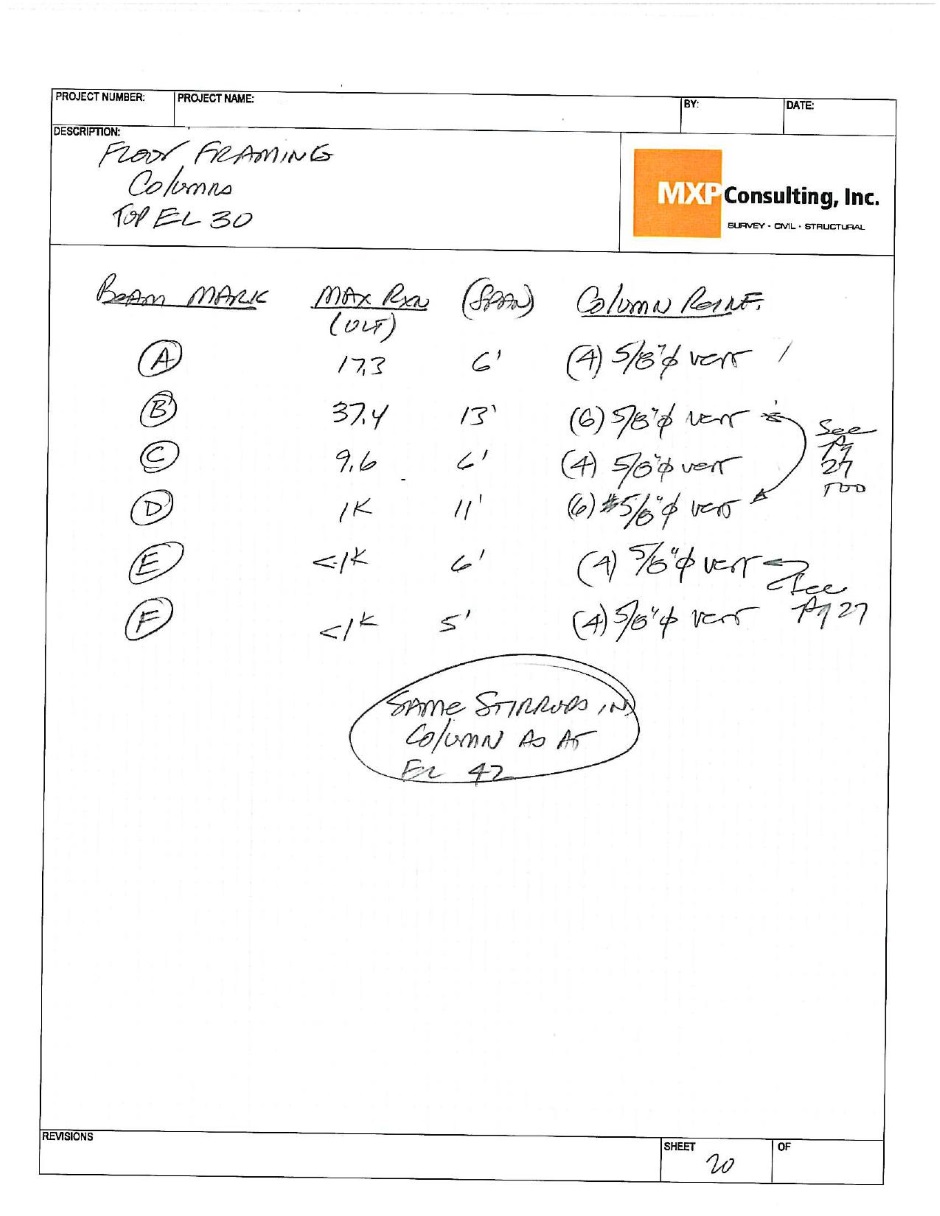 PROJECT NUMBER: PROJECT NAME: BY: DATE:
DESCRIPTION:
FLOOR FRAMING
Columns
TOP EL 30
MXP Consulting, Inc.
SURVEY • CIVIL • STRUCTURAL
BEAM MARK MAX RXN (SPAN) COLUMN REINF.
(ULT)
A 17.3 6' (4) 5/8"ϕ vert
B 37.4 13' (6) 5/8"ϕ vert
C 9.6 6' (4) 5/8"ϕ vert
D 1K 11' (6) #5/8"ϕ vert
See
Pg
27
TOO
E <1K 6' (4) 5/8"ϕ vert
F <1K 5' (4) 5/8"ϕ vert
See
Pg 27
SAME STIRRUPS IN
COLUMN AS AT
EL 42
REVISIONS
SHEET 20 OF